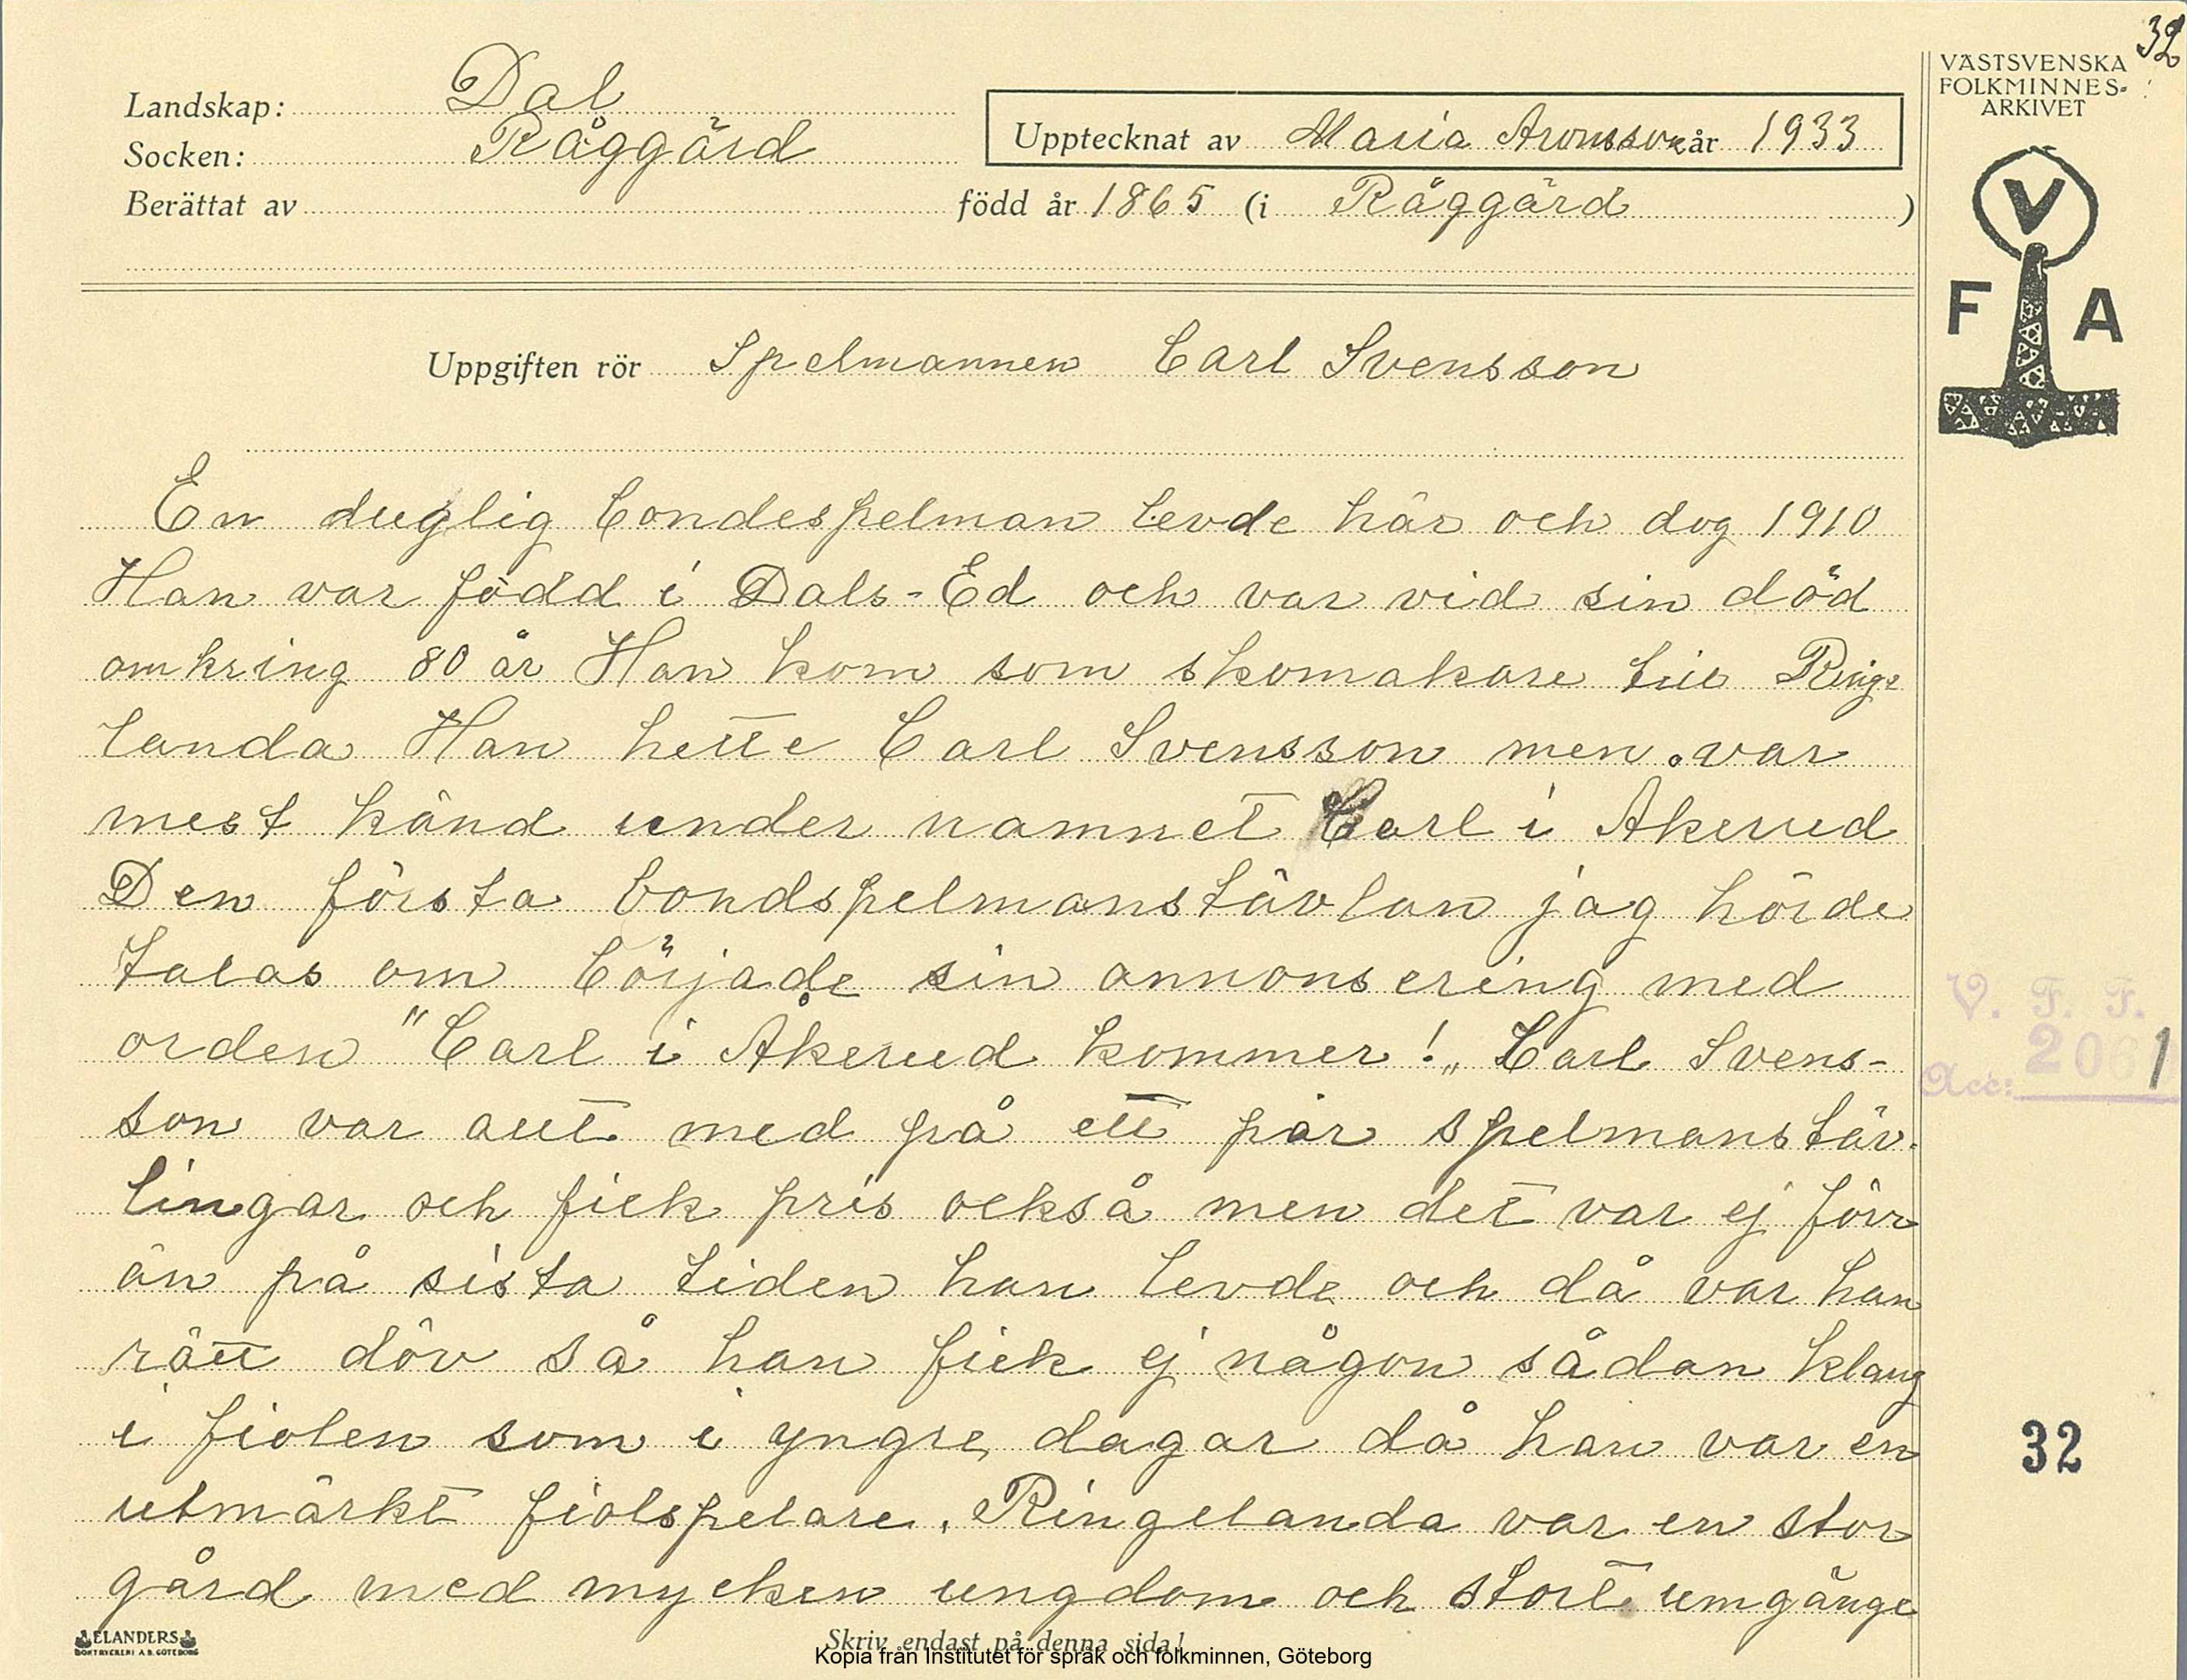 32
VÄSTSVENSKA
FOLKMINNES-
ARKIVET
Landskap: Dal
Socken: Råggärd
Upptecknat av Maria Aronsson år 1933
Berättat av född år 1865 (i Råggärd )
V
F A
Uppgiften rör Spelmannen Carl Svensson
En duglig bondespelman levde här och dog 1910
Han var född i Dals-Ed och var vid sin död
omkring 80 år Han kom som skomakare till Ringe
landa Han hette Carl Svensson men var
mest känd under namnet Carl i Akerud
Den första bondspelmanstävlan jag hörde
talas om började sin annonsering med
orden "Carl i Åkerud kommer!„ Carl Svens-
son var aut med på ett par spelmanstäv-
lingar och fick pris också men det var ej förr
än på sista tiden han levde och då var han
rätt döv så han fick ej någon sådan klang
i fiolen som i yngre dagar då han var en
utmärkt fiolspelare. Ringelanda var en stor
gård med mycken ungdom och stort umgänge
V. F. F.
Acc: 2061
32
ELANDERS
BOKTRYCKERI A.B. GÖTEBORG
Skriv endast på denna sida!
Kopia från Institutet för språk och folkminnen, Göteborg